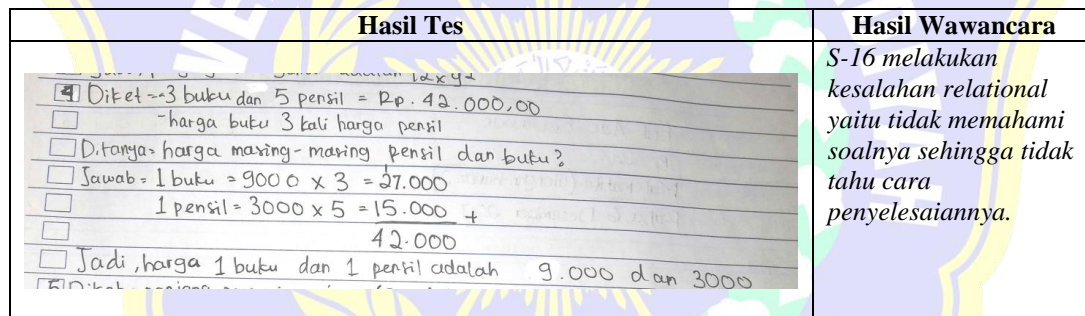 Hasil Tes
Hasil Wawancara
adalah 12 x 42
4 Diket -3 buku dan 5 pensil = Rp. 42.000,00
-harga buku 3 kali harga pensil
Ditanya = harga masing-masing pensil dan buku?
Jawab = 1 buku = 9000 x 3 = 27.000
1 pensil = 3000 x 5 = 15.000 +
42.000
Jadi, harga 1 buku dan 1 pensil adalah 9.000 dan 3000
5
S-16 melakukan
kesalahan relational
yaitu tidak memahami
soalnya sehingga tidak
tahu cara
penyelesaiannya.